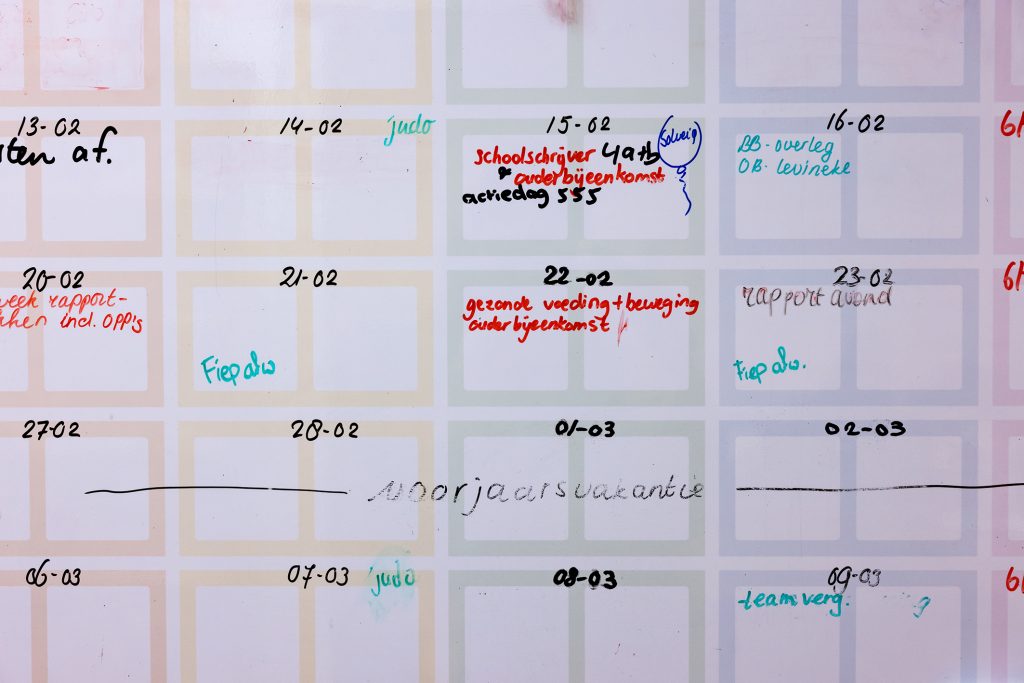 13-02
14-02 judo
15-02
16-02
6
af.
schoolschrijver 4a+b
& ouderbijeenkomst
actiedag 555
Solveig
BB-overleg
OB-levineke
20-02
21-02
22-02
23-02
6
week rapport-
incl. OPP's
Fiep afw
gezonde voeding + beweging
ouderbijeenkomst
rapport avond
Fiep afw.
27-02
28-02
01-03
02-03
voorjaarsvakantie
06-03
07-03 judo
08-03
09-03
6
teamverg.